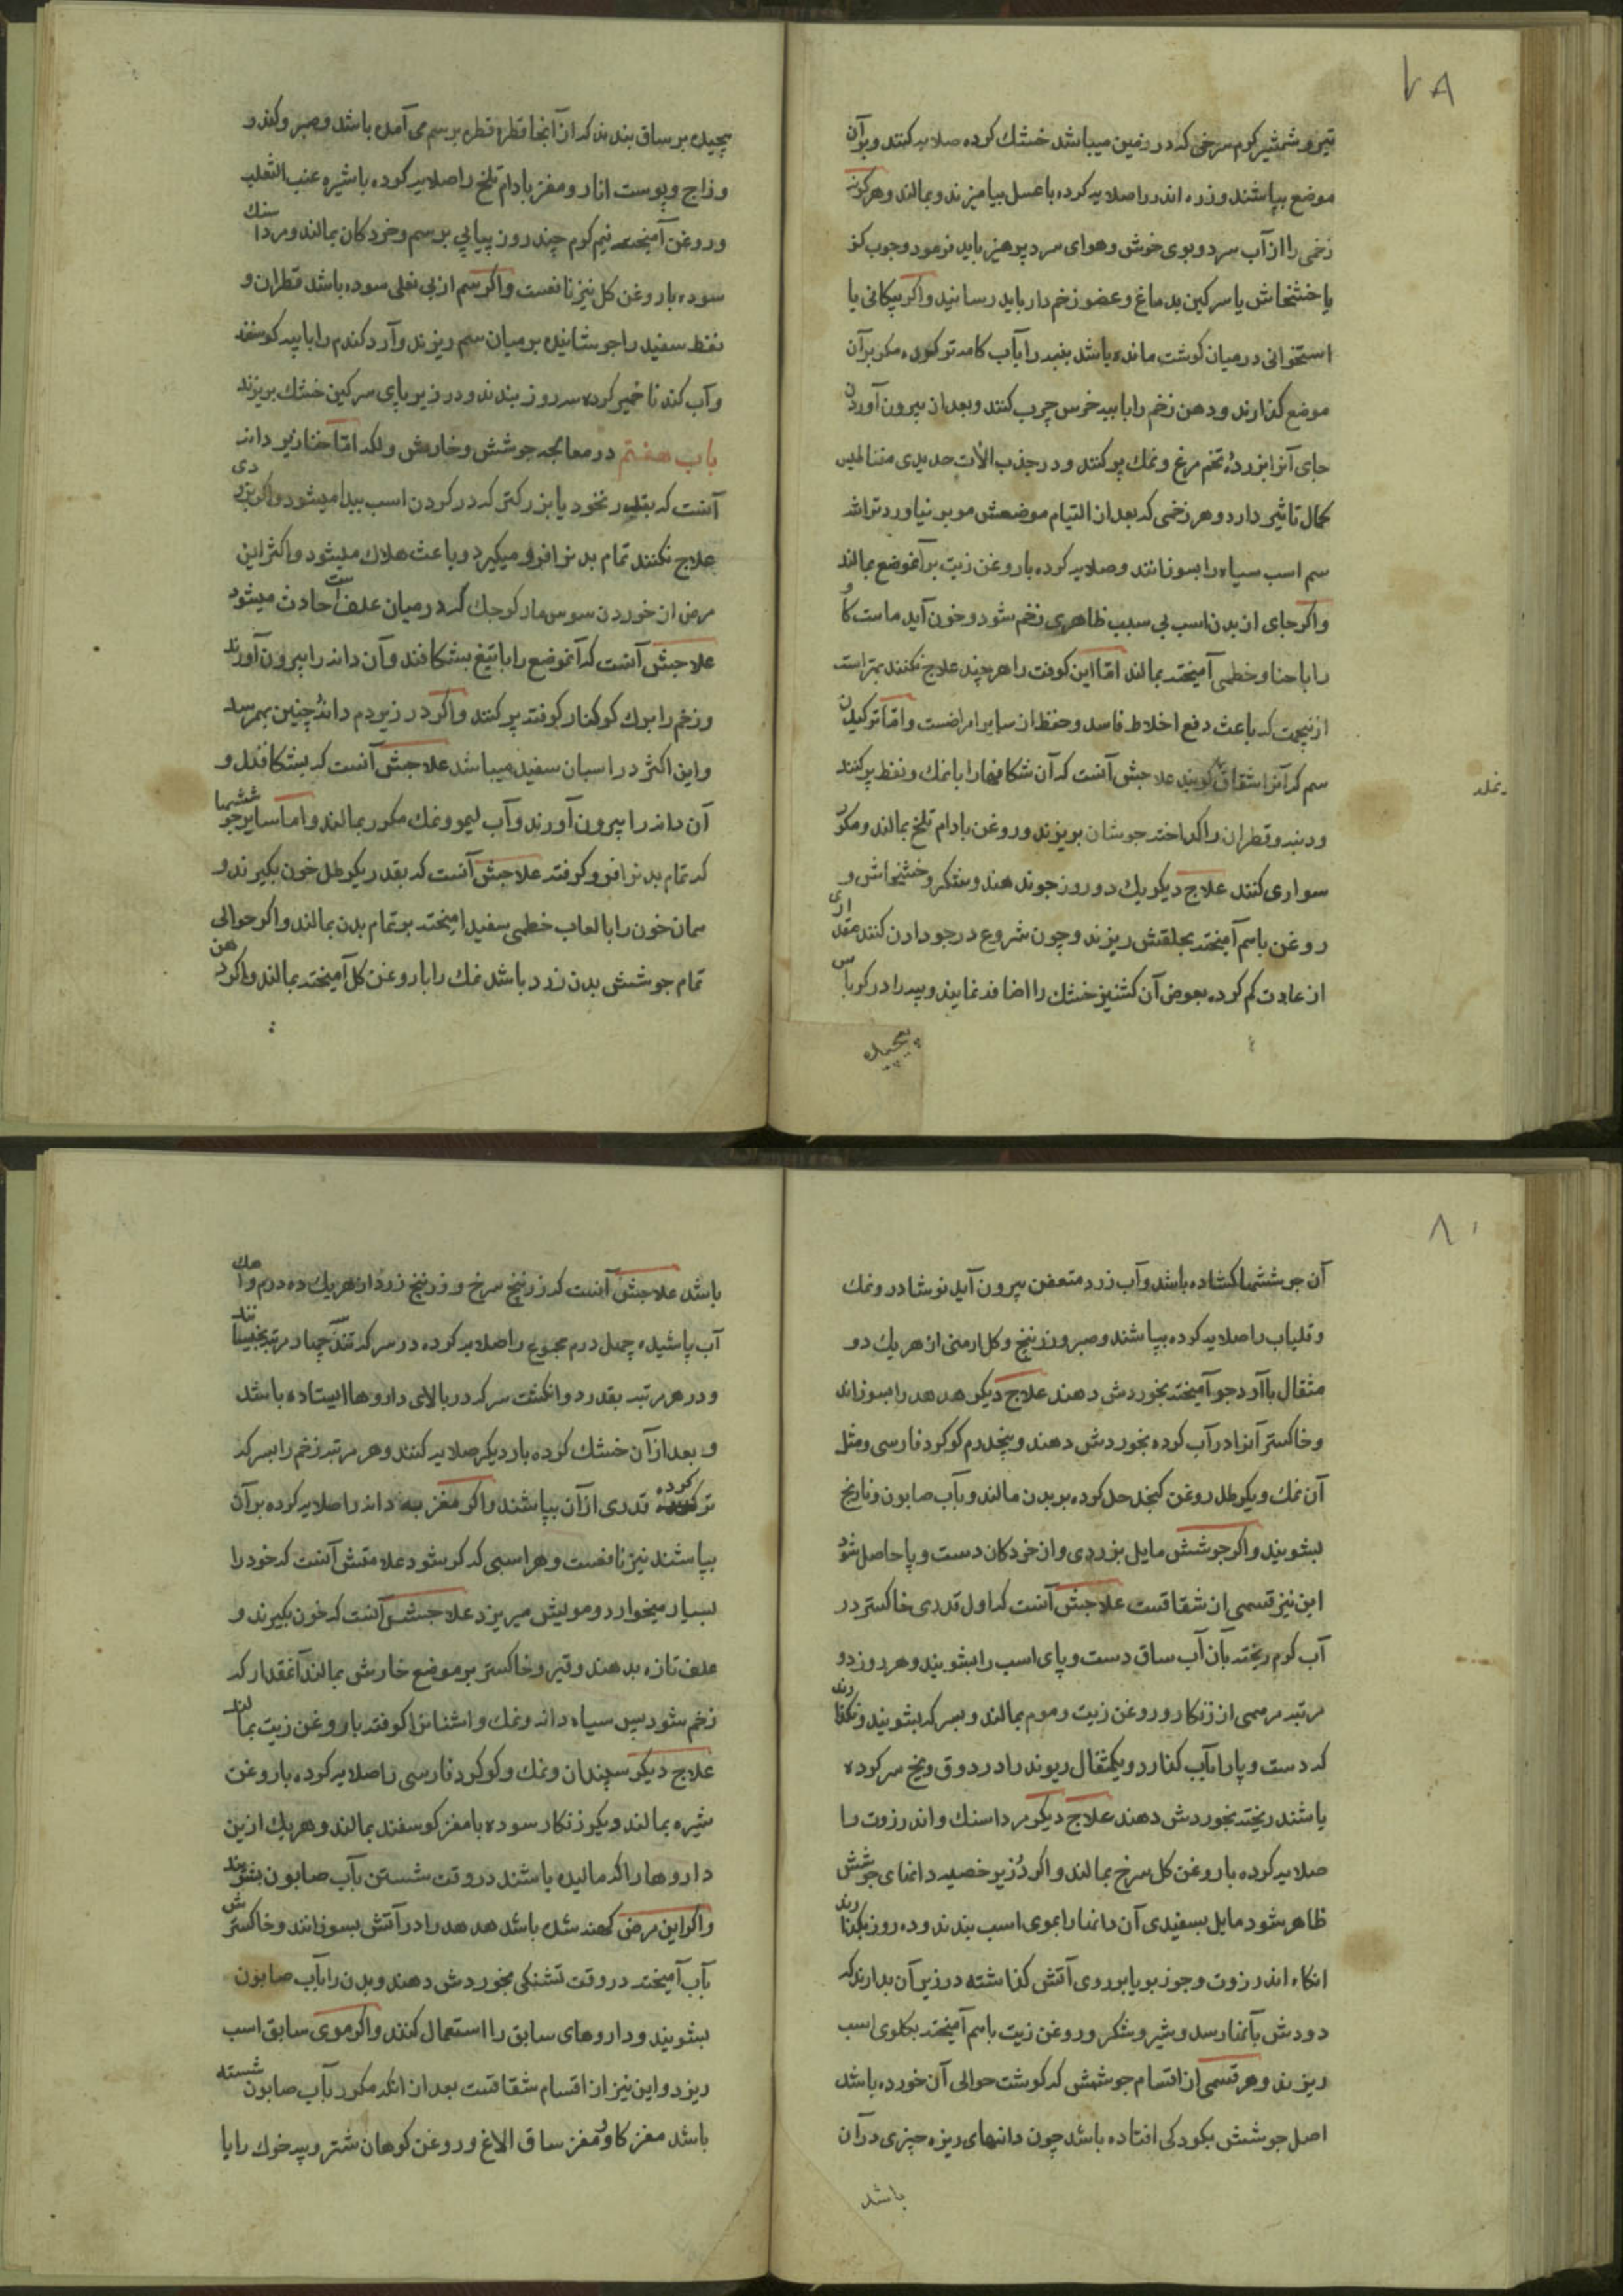 ۷۸
تیر و شمشیر کرم سرخی که در زمین میباشد خشك کرده صلایه کنند و بر آن
موضع بپاشند و زره اندر را صلایه کرده با عسل بیامیزند و بمالند و هر کونه
زخمی را از آب سرد و بوی خوش و هوای سرد پرهیز باید فرمود و جوب کز
یا خشخاش یا سرکین بدماغ و عضو زخم دار باید رسانید و اکر پیکانی یا
استخوانی در میان کوشت مانده باشد پنبه را بآب کامه تر کرده مکرر بر آن
موضع کذارند و دهن زخم را با پیه خرس چرب کنند و بعد از بیرون آوردن
جای آنرا بزردهٔ تخم مرغ و نمك پر کنند و در جذب الات حدیدی مغناطیس
کمال تاثیر دارد و هر زخمی که بعد از التیام موضعش مو بر نیاورد تراشه
سم اسب سیاه را بسوزانند و صلایه کرده با روغن زیت بر آنموضع بمالند
و اکر جای از بدن اسب بی سبب ظاهری زخم شود و خون آید ماست کاو
را با حنا و خطمی آمیخته بمالند اما این کوفت را هر چند علاج نکنند بهتر است
ازینجهت که باعث دفع اخلاط فاسد و حفظ از سایر امراضست و اما ترکیدن
سم که آنرا شقاق کویند علاجش آنست که آن شکافها را با نمك و نفط پر کنند
و دنبه و قطران را کداخته جوشان بریزند و روغن بادام تلخ بمالند و مکرر
سواری کنند علاج دیکر یك دو روز جو ندهند و شکر و خشخاش و
روغن باسم آمیخته بحلقش ریزند و چون شروع در جو دادن کنند مقداری
از عادت کم کرده بعوض آن کشنیز خشك را اضافه نمایند و پیه را در کرباس
پیچیده
پیچیده بر ساق بندند که از آنجا قطره قطره بر سم می آمده باشد و صبر و کندر
و زاج و پوست انار و مغز بادام تلخ را صلایه کرده با شیره عنب الثعلب
و روغن آمیخته نیم کرم چند روز پیاپی بر سم و خردکان بمالند و مرداسنك
سوده با روغن کل نیز نافعست و اکر سم از بی نعلی سوده باشد قطران و
نفط سفید را جوشانیده بر میان سم ریزند و آرد کندم را با پیه کوسفند
و آب کندنا خمیر کرده سه روز بندند و در زیر پای سرکین خشك بریزند
باب هفتم در معالجه جوشش و خارش ولکه اما خنازیر دانه
آنست که بقدر نخود یا بزرکتر که در کردن اسب پیدا میشود و اکر بزودی
علاج نکنند تمام بدنرا فرو میکیرد و باعث هلاك میشود و اکثر این
مرض از خوردن سوس مار کوچك که در میان علف است حادث میشود
علاجش آنست که آنموضع را با تیغ بشکافند و آن دانه را بیرون آورند
و زخم را ببرك کوکنار کوفته پر کنند و اکر در زیر دم دانهٔ چنین بهم رسد
و این اکثر در اسبان سفید میباشد علاجش آنست که بشکافند و
آن دانه را بیرون آورند و آب لیمو و نمك مکرر بمالند و اما سایر جوششها
که تمام بدنرا فرو کرفته علاجش آنست که بقدر یکرطل خون بکیرند و
همان خون را با لعاب خطمی سفید امیخته بر تمام بدن بمالند و اکر حوالی
تمام جوشش بدن زرد باشد نمك را با روغن کل آمیخته بمالند و اکر دهن
۸۰
آن جوششها کشاده باشد و آب زرد متعفن بیرون آید نوشادر و نمك
و قلیاب را صلایه کرده بپاشند و صبر و زرنیخ و کل ارمنی از هر یك دو
مثقال با آرد جو آمیخته بخوردش دهند علاج دیکر هدهد را بسوزانند
و خاکستر آنرا در آب کرده بخوردش دهند و پنجدرم کوکرد فارسی و مثل
آن نمك و یکرطل روغن کنجد حل کرده بر بدن مالند و بآب صابون و نارنج
بشویند و اکر جوشش مایل بزردی و از خردکان دست و پا حاصل شود
این نیز قسمی از شقاقست علاجش آنست که اول قدری خاکستر در
آب کرم ریخته بآن آب ساق دست و پای اسب را بشویند و هر روز دو
مرتبه مرهمی از زنکار و روغن زیت و موم بمالند و بسرکه بشویند و نکذارند
که دست و پا را بآب کذارد و یکمثقال ریوند را در دوق و یخ سر کرده
باشند ریخته بخوردش دهند علاج دیکر مرداسنك و اندرزوت را
صلایه کرده با روغن کل سرخ بمالند و اکر در زیر خصیه دانهای جوشش
ظاهر شود مایل بسفیدی آن دانها را بموی اسب بندند و ده روز بکذارند
انکاه اندرزوت و جوز بویا بر روی آتش کذاشته در زیر آن بدارند که
دودش بآنها رسد و شیر و شکر و روغن زیت باسم آمیخته بکلوی اسب
ریزند و هر قسمی از اقسام جوشش که کوشت حوالی آن خورده باشد
اصل جوشش بکودکی افتاده باشد چون دانهای ریزه چیزی در آن
باشد
باشد علاجش آنست که زرنیخ سرخ و زرنیخ زرد از هر یك ده درم و آهك
آب پاشیده چهل درم مجموع را صلایه کرده در سرکه تند چهار مرتبه بخیسانند
و در هر مرتبه بقدر دو انکشت سرکه در بالای داروها ایستاده باشد
و بعد از آن خشك کرده بار دیکر صلایه کنند و هر مرتبه زخم را بسرکه
تر کرده قدری از آن بپاشند و اکر مغز به دانه را صلایه کرده بر آن
بپاشند نیز نافعست و هر اسبی که کر شود علامتش آنست که خود را
بسیار میخوارد و مویش میریزد علاجش آنست که خون بکیرند و
علف تازه بدهند و قیر و خاکستر بر موضع خارش بمالند آنقدار که
زخم شود پس سیاه دانه و نمك و اشنانرا کوفته با روغن زیت بمالند
علاج دیکر سپندان و نمك و کوکرد فارسی را صلایه کرده با روغن
شیره بمالند و یکروز زنکار سوده با مغز کوسفند بمالند و هر یك ازین
داروها را که مالیده باشند در وقت شستن بآب صابون بشویند
و اکر این مرض کهنه شده باشد هدهد را در آتش بسوزانند و خاکسترش
بآب آمیخته در وقت تشنکی بخوردش دهند و بدن را بآب صابون
بشویند و داروهای سابق را استعمال کنند و اکر موی سابق اسب
ریزد و این نیز از اقسام شقاقست بعد از انکه مکرر بآب صابون شسته
باشد مغز کاو و مغز ساق الاغ و روغن کوهان شتر و پیه خوك را یا